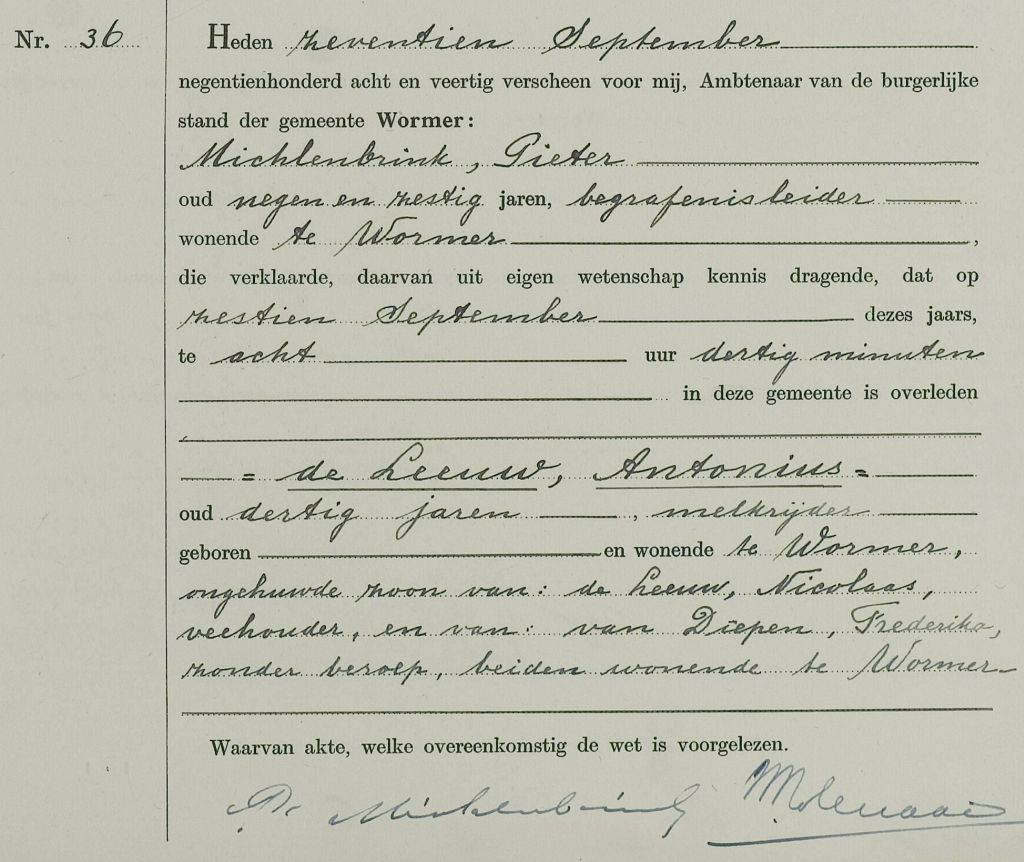 Nr. 36
Heden zeventien September
negentienhonderd acht en veertig verscheen voor mij, Ambtenaar van de burgerlijke
stand der gemeente Wormer:
Michlenbrink, Pieter
oud negen en zestig jaren, begrafenisleider
wonende te Wormer,
die verklaarde, daarvan uit eigen wetenschap kennis dragende, dat op
zestien September dezes jaars,
te acht uur dertig minuten
in deze gemeente is overleden
= de Leeuw, Antonius =
oud dertig jaren, melkrijder
geboren en wonende te Wormer,
ongehuwde zoon van: de Leeuw, Nicolaas,
veehouder, en van: van Diepen, Frederika,
zonder beroep, beiden wonende te Wormer
Waarvan akte, welke overeenkomstig de wet is voorgelezen.
P. Michlenbrink Molenaar